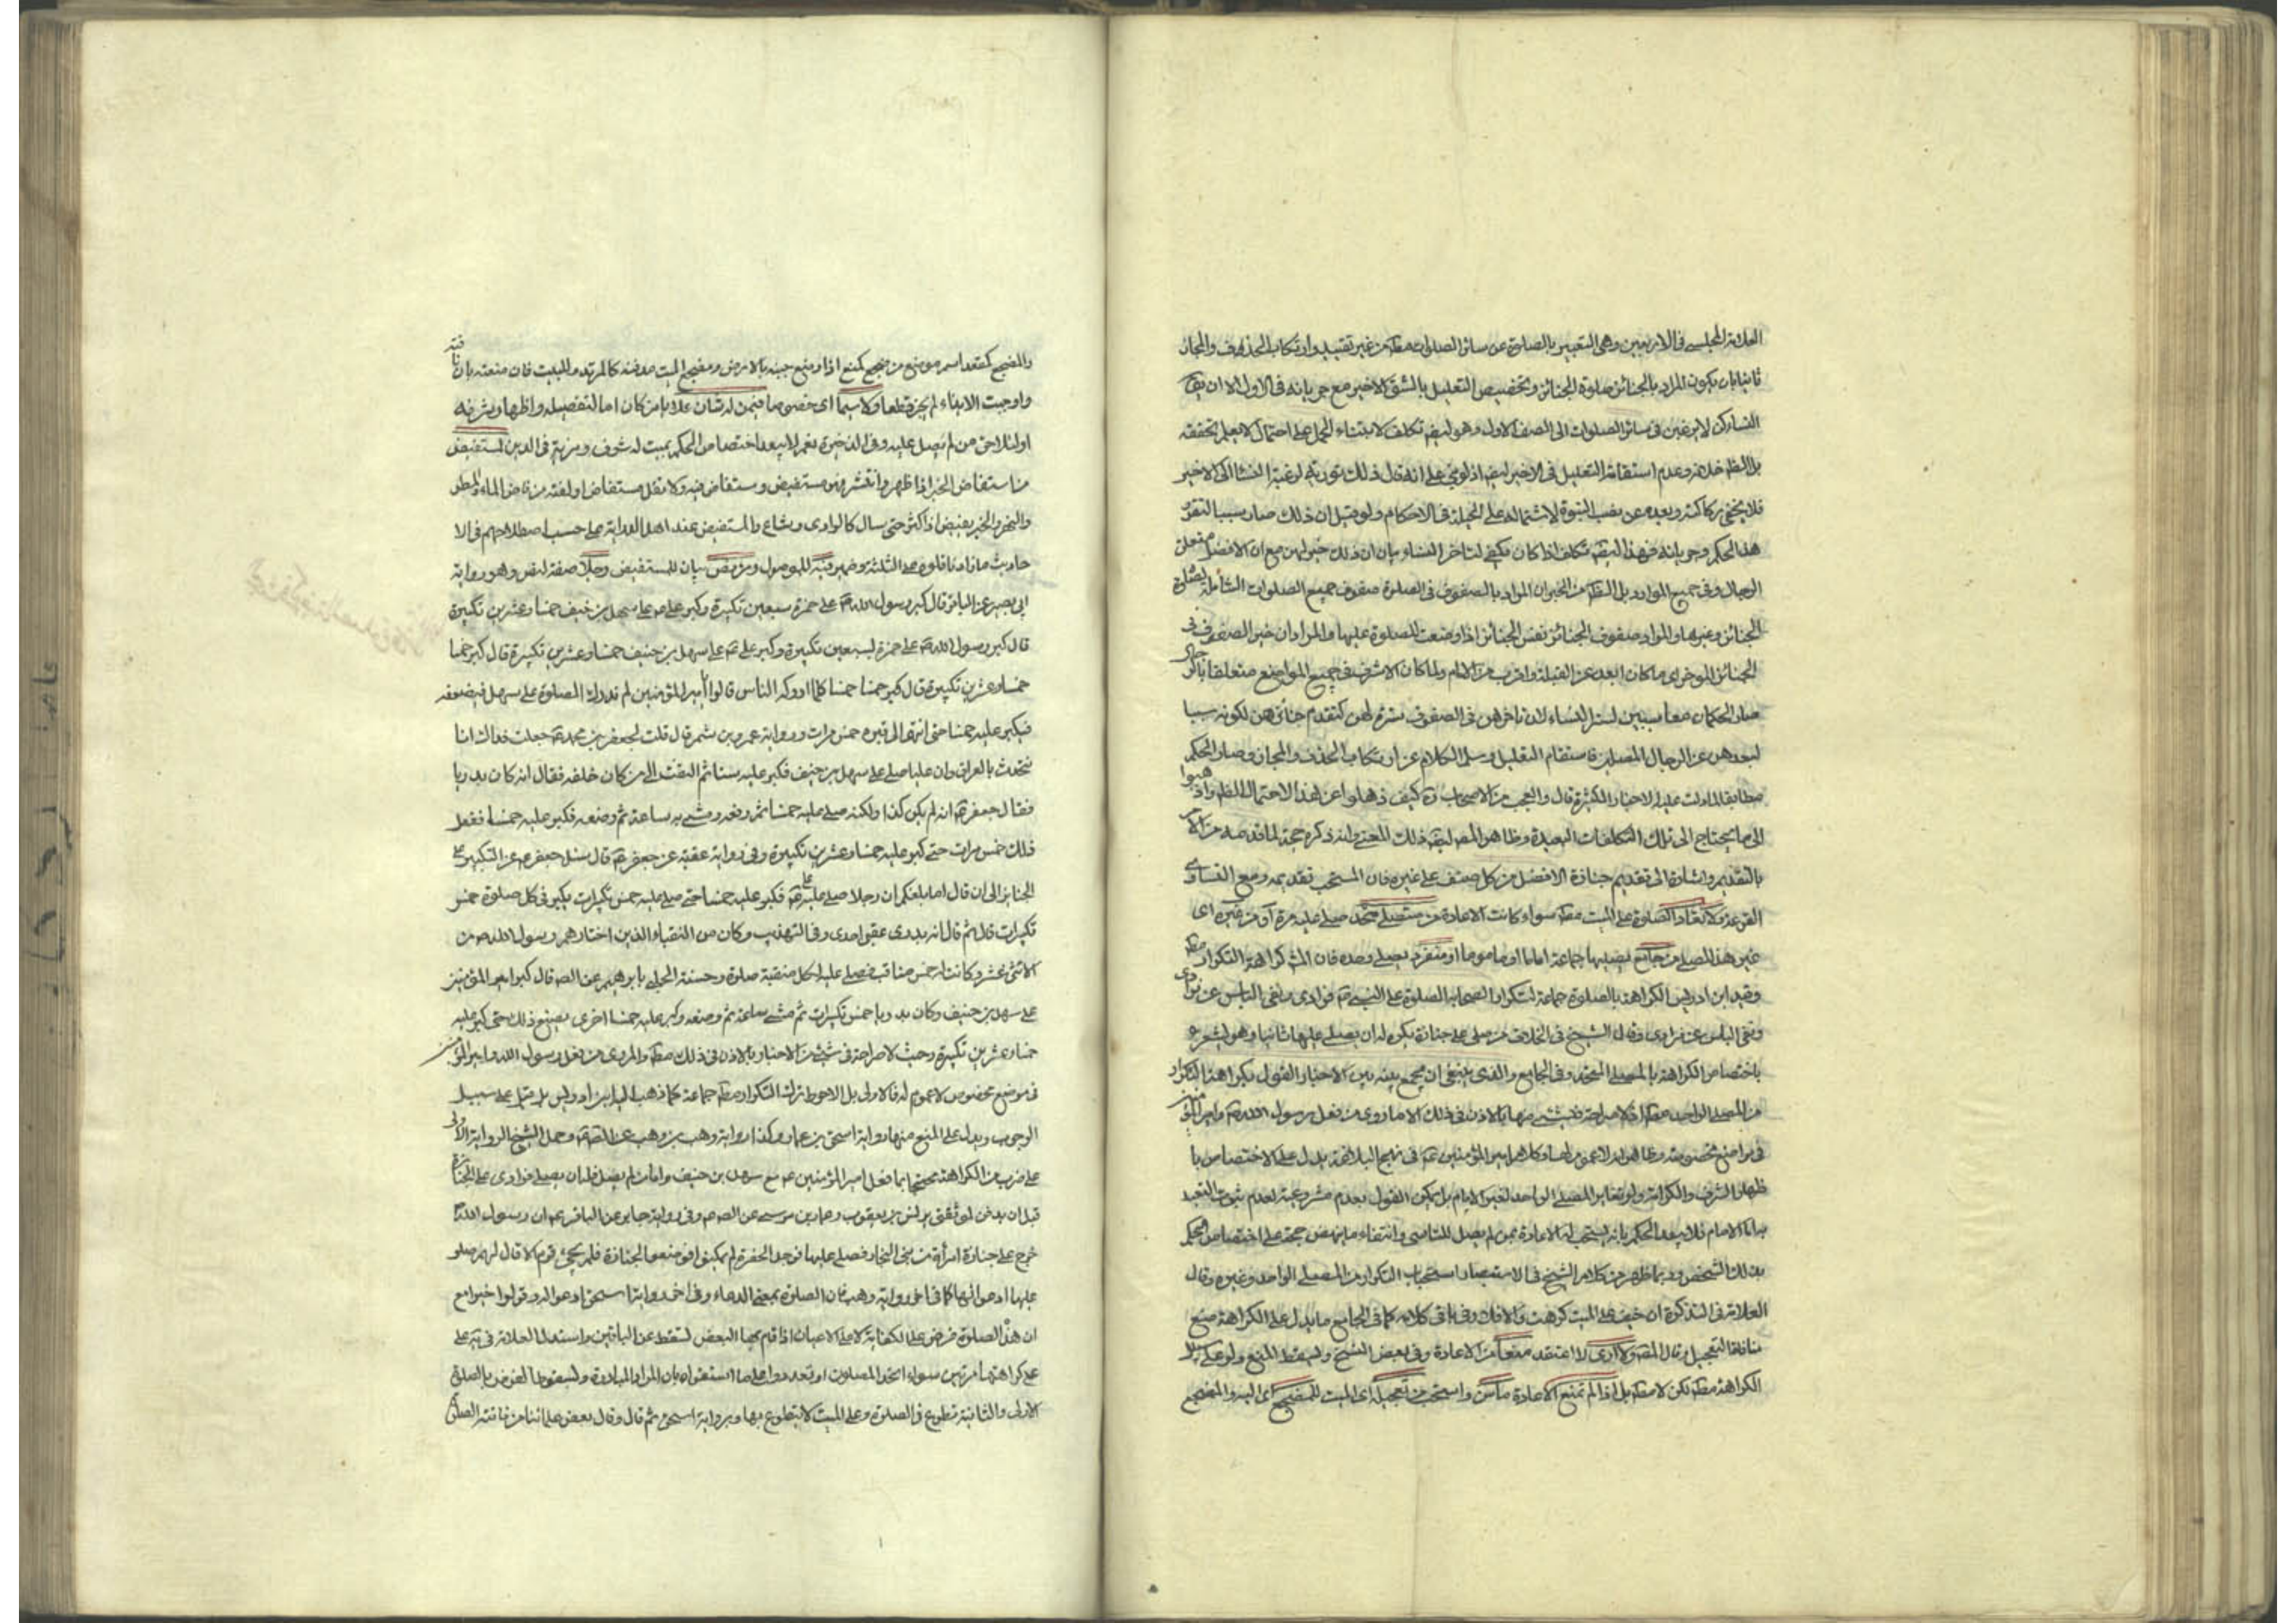 العلامة المجلسي في الاربعين وهي التعبير بالصلوة عن سائر الصلوات مطلقا من غير تقييد وارتكاب الحذف والمجاز
ثانيا بان يكون المراد بالجنائز صلوة الجنائز وتخصيص التعليل بالشق الاخير مع جريانه في الاول الا ان يقال
النساء كن لا يرغبن في سائر الصلوات الى الصف الاول وهو ايضا تكلف لابتناء الحمل على احتمال لا يعلم تحققه
بل الظاهر خلافه وعدم استقامة التعليل في الاخير ايضا اذ لو بني على انه قال ذلك تورية لرغبة النساء الى الاخير
فلا يخفى ركاكته وبعده عن نصب النبوة لاشتماله على الحيلة في الاحكام ولو قيل ان ذلك صار سببا لتقرر
هذا الحكم وجريانه فهذا ايضا تكلف اذا كان يكفي لتاخر النساء بيان ان ذلك خير لهن مع ان الافضل متعلق
الرجال وفي جميع الموارد بل الظاهر من الخبر ان المراد بالصفوف في الصلوة صفوف جميع الصلوات الشاملة لصلوة
الجنائز وغيرها والمراد صفوف الجنائز نفس الجنائز اذا وضعت للصلوة عليها والمراد ان خير الصفوف في
الجنائز المؤخر اي ما كان ابعد عن القبلة واقرب من الامام ولما كان الاشرف في جميع المواضع متعلقا بالرجال
صار الحكمان معا سببين لستر النساء لان تاخرهن في الصفوف ستر لهن كتقدم جنائزهن لكونه سببا
لبعدهن عن الرجال المصلين فاستقام التعليل وسلم الكلام عن ارتكاب الحذف والمجاز وصار الحكم
مطابقا لما دلت عليه الاخبار الكثيرة قال والعجب من الاصحاب ره كيف ذهلوا عن هذا الاحتمال الظاهر وذهبوا
الى ما يحتاج الى تلك التكلفات البعيدة وظاهر المصنف ايضا ذلك المعنى وانه ذكره حجة لما قدمه من الامر
بالتقديم واشارة الى تقديم جنازة الافضل من كل صنف على غيره فان المستحب تقديمه ومع التساوي
القرعة ولا تعاد الصلوة على الميت مطلقا سواء كانت الاعادة من مصلي متحد صلى عليه مرة او من غيره اي
غير هذا المصلي من جامع يصليها جماعة اماما او ماموما او منفرد يصلي وحده فان المشهور كراهة التكرار مطلقا
وقيد ابن ادريس الكراهة بالصلوة جماعة لتكرار الصحابة الصلوة على النبي ص فرادى ونفي الباس عن فرادى
ونفى الباس عن فرادى وقال الشيخ في الخلاف من صلى على جنازة يكره له ان يصلي عليها ثانيا وهو يشعر
باختصاص الكراهة بالمصلي المتحد وفي الجامع والذي ينبغي ان يجمع بينه بين الاخبار القول بكراهة التكرار
من المصلي الواحد مطلقا اذ لا صراحة في شيء منها بالاذن في ذلك الا ما روي من فعل رسول الله ص وامير المؤمنين
في مواضع مخصوصة وظاهر انه لا عموم لها وكلام امير المؤمنين ع في نهج البلاغة يدل على الاختصاص با
ظهار الشرف والكرامة ولو تغاير المصلي الواحد لغير الامام بل يمكن القول بعدم مشروعيته لعدم ثبوت التعبد
به اما الامام فلا يبعد الحكم بانه يستحب له الاعادة بمن لم يصل للتاسي وانتفاء ما ينهض حجة على اختصاص الحكم
بذلك الشخص وربما ظهر من كلام الشيخ في الاستبصار استحباب التكرار من المصلي الواحد وغيره وقال
العلامة في التذكرة ان خيف على الميت كرهت والا فلا وفي باقي كلامه كما في الجامع ما يدل على الكراهة مع
منافاة التعجيل وقال المصنف ولا ارى لا اعتقد منعا من الاعادة وفي بعض النسخ ولسقط المنع ولو على سبيل
الكراهة مطلقا لكن لا مطلقا بل اذا لم تمنع الاعادة ما سن واستحب من تعجيله اي الميت للمضجع اي اليه والمضجع
والمضجع كمقعد اسم موضع من ضجع كمنع اذا وضع جنبه بالارض ومضجع الميت مدفنه كالمرقد والمبيت فان منعته بان نافته
واوجبت الابقاء لم يجز قطعا ولا سيما اي خصوصا فيمن له شان علا بان كان اعادتها لتفضيله واظهار شرفه
اولئلا حق من لم يصل عليه وفي الذخيرة نعم لا يبعد اختصاص الحكم بميت له شرف ومزية في الدين لمستفيض
من استفاض الخبر اذا ظهر وانتشر فهو مستفيض ومستفاض فيه ولا تقل مستفاض او لغته من فاض الماء والمطر
والبحر والخير يفيض اذا كثر حتى سال كالوادي وشاع والمستفيض عند اهل الدراية على حسب اصطلاحهم في الا
حاديث ما زاد ناقلوه على الثلثة وضمير فيه للموصول ومن نص بيان للمستفيض وجلا صفة لنص وهو رواية
ابي بصير عن الباقر قال كبر رسول الله ص على حمزة سبعين تكبيرة وكبر علي ع على سهل بن حنيف خمسا وعشرين تكبيرة
قال كبر رسول الله ص على حمزة لسبعين تكبيرة وكبر علي ع على سهل بن حنيف خمسا وعشرين تكبيرة قال كبر خمسا
خمسا وعشرين تكبيرة قال كبر خمسا خمسا كلما ادركه الناس قالوا يا امير المؤمنين لم ندرك الصلوة على سهل فيضعه
فيكبر عليه خمسا حتى انتهى الى قبره خمس مرات ورواية عمرو بن شمر قال قلت لجعفر بن محمد ع جعلت فداك انا
نتحدث بالعراق ان عليا صلى على سهل بن حنيف فكبر عليه ستا ثم التفت الى من كان خلفه فقال انه كان بدريا
فقال جعفر ع انه لم يكن كذا ولكنه صلى عليه خمسا ثم رفعه ومشى به ساعة ثم وضعه فكبر عليه خمسا ففعل
ذلك خمس مرات حتى كبر عليه خمسا وعشرين تكبيرة وفي رواية عقبة عن جعفر ع قال سئل جعفر ع عن التكبير على
الجنائز الى ان قال اما بلغكم ان رجلا صلى عليه علي ع فكبر عليه خمسا حتى صلى عليه خمس تكبيرات يكبر في كل صلوة خمس
تكبيرات قال ثم قال انه بدري عقبي احدي وفي التهذيب وكان من النقباء الذين اختارهم رسول الله ص من
الاثني عشر وكانت له خمس مناقب فصلى عليه لكل منقبة صلوة وحسنة الحلبي بابرهيم عن الص قال كبر امير المؤمنين
على سهل بن حنيف وكان بدريا خمس تكبيرات ثم مشى ساعة ثم وضعه وكبر عليه خمسا اخرى يصنع ذلك حتى كبر عليه
خمسا وعشرين تكبيرة وحيث لا صراحة في شيء من الاخبار بالاذن في ذلك مطلقا والمروي من فعل رسول الله وامير المؤمنين
في موضع مخصوص لا عموم له فالاولى بل الاحوط ترك التكرار مطلقا جماعة كما ذهب اليه ابن ادريس بل قيل على سبيل
الوجوب ويدل على المنع منها رواية اسحق بن عمار وكذا رواية وهب بن وهب عن الص ع وحمل الشيخ الرواية الاولى
على ضرب من الكراهة محتجا بما فعل امير المؤمنين ع مع سهل بن حنيف واما من لم يصل فله ان يصلي فرادى على الجنازة
قبل ان يدفن لموثق يونس بن يعقوب وعمار بن موسى عن الص ع وفي رواية جابر عن الباقر ع ان رسول الله ص
خرج على جنازة امرأة من بني النجار فصلى عليها فوجد الحفرة لم يمكنوا فوضعوا الجنازة فلم يجئ قوم الا قال لهم صلوا
عليها اي ادعوا لها كما في اخر رواية وهب فان الصلوة بمعنى الدعاء وفي اخر رواية اسحق ادعوا له وقولوا خيرا مع
ان هذه الصلوة فرض على الكفاية لا على الاعيان اذا قام بها البعض لسقط عن الباقين واستدل العلامة في ية على
على كراهتها مرتين سواء اتحد المصلون او تعددوا على ما استقراه بان المراد المبادرة ولسقوط الفرض بالصلوة
الاولى والثانية تطوع في الصلوة وعلى الميت لا يتطوع بها وبرواية اسحق ثم قال وقال بعض علمائنا من فاتته الصلوة